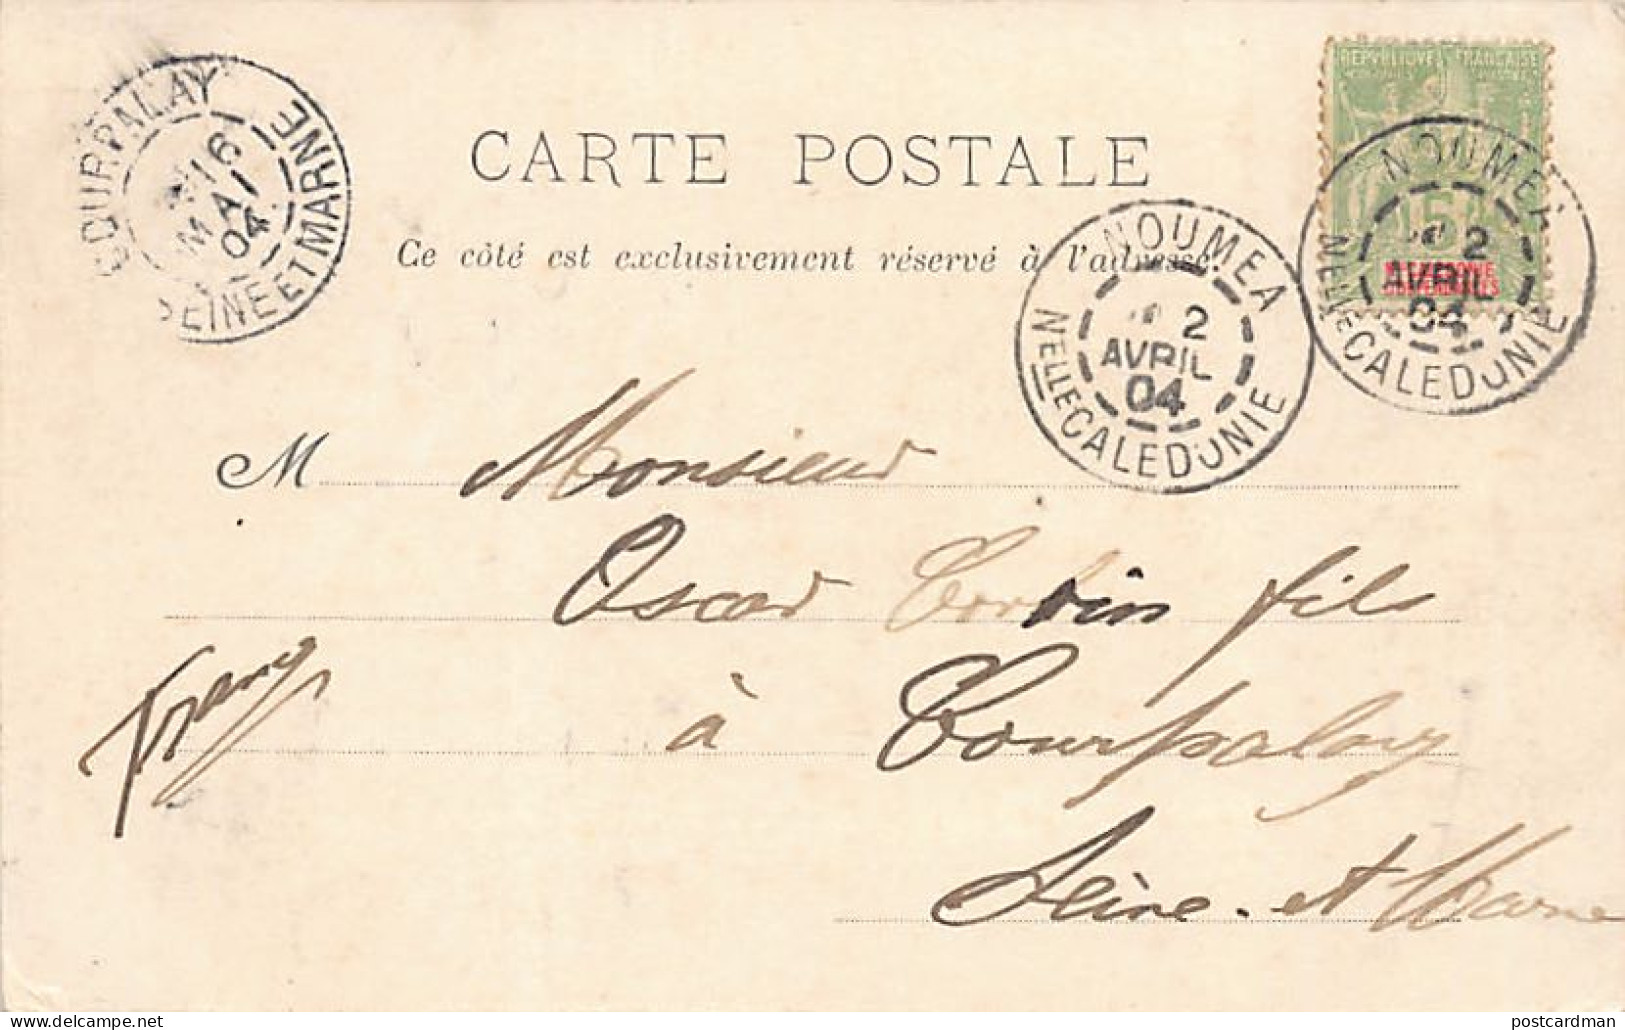 RÉPUBLIQUE FRANÇAISE
5
COURPALAY
16
MAI
04
SEINE ET MARNE
CARTE POSTALE
Ce côté est exclusivement réservé à l'adresse.
NOUMEA
2
AVRIL
04
Nelle CALEDONIE
NOUMEA
2
AVRIL
04
Nelle CALEDONIE
M Monsieur
Oscar fils
à Courpalay
Seine-et Marne
postcardman